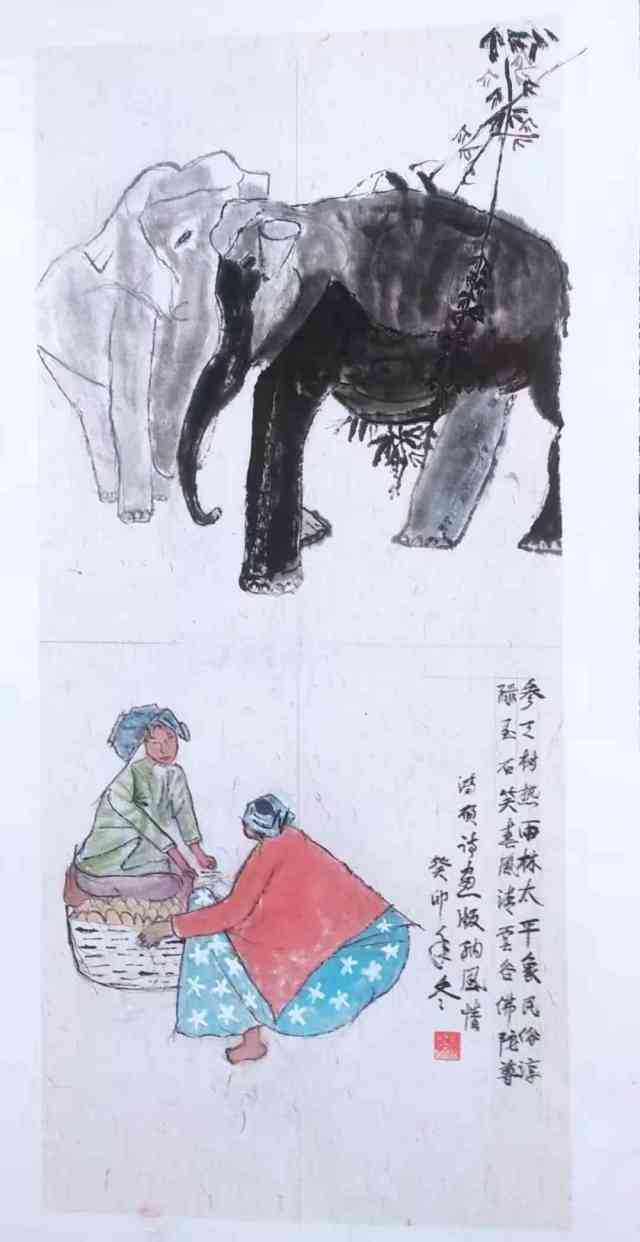 参天树热雨林太平象民俗淳
玉石笑春风清云谷佛陀尊
诗画版纳风情
癸卯年冬